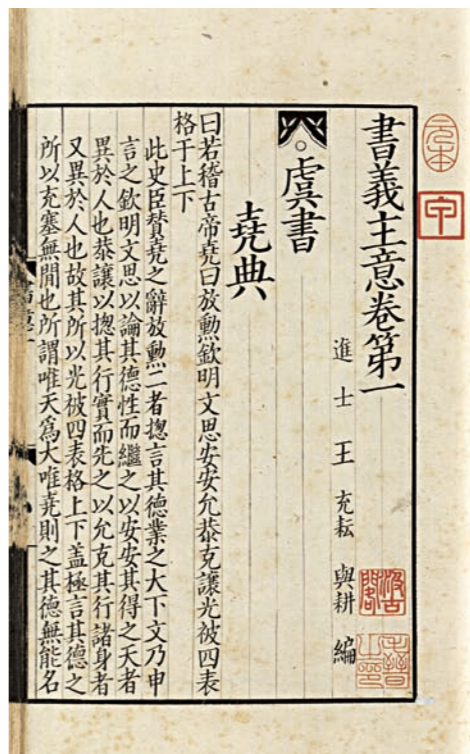 書義主意卷第一
進士 王 充耘 與耕 編
虞書
堯典
曰若稽古帝堯曰放勲欽明文思安安允恭克讓光被四表
格于上下
此史臣賛堯之辭放勲二者揔言其德業之大下文乃申
言之欽明文思以論其德性而繼之以安安其得之天者
異於人也恭讓以揔其行實而先之以允克其行諸身者
又異於人也故其所以光被四表格上下盖極言其德之
所以充塞無間也所謂唯天爲大唯堯則之其德無能名
元本
汲古閣